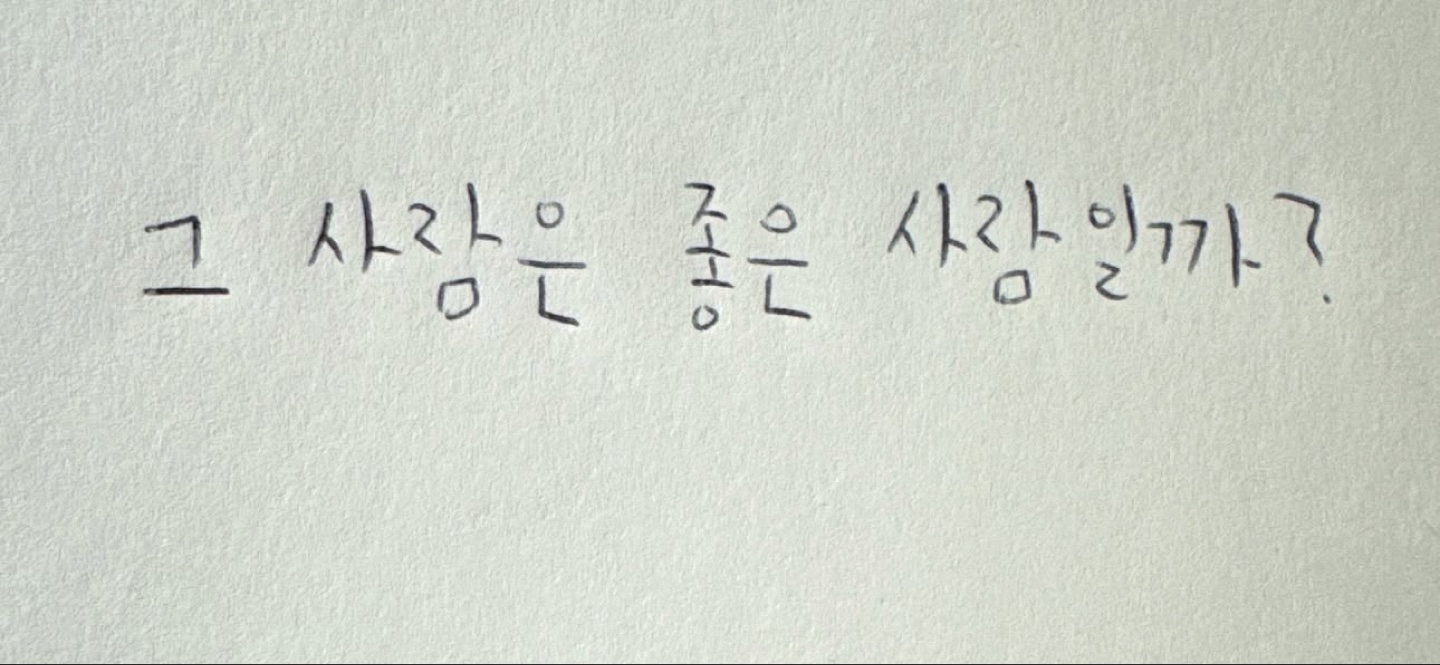 그 사람은 좋은 사람일까?